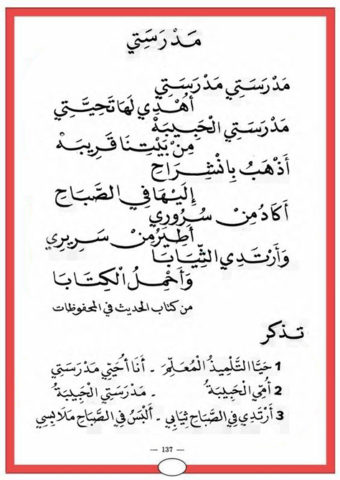 مَدْرَسَتِي
مَدْرَسَتِي مَدْرَسَتِي
أُهْدِي لَهَا تَحِيَّتِي
مَدْرَسَتِي الْحَبِيبَهْ
مِنْ بَيْتِنَا قَرِيبَهْ
أَذْهَبُ بِانْشِرَاحِ
إِلَيْهَا فِي الصَّبَاحِ
أَكَادُ مِنْ سُرُورِي
أَطِيرُ مِنْ سَرِيرِي
وَأَرْتَدِي الثِّيَابَا
وَأَحْمِلُ الْكِتَابَا
من كتاب الحديث في المحفوظات
تذكر
1 حَيَّا التِّلْمِيذُ الْمُعَلِّمَ . أَنَا أُحَيِّي مَدْرَسَتِي
2 أُمِّي الْحَبِيبَةُ . مَدْرَسَتِي الْحَبِيبَةُ
3 أَرْتَدِي فِي الصَّبَاحِ ثِيَابِي . أَلْبَسُ فِي الصَّبَاحِ مَلَابِسِي
— 137 —